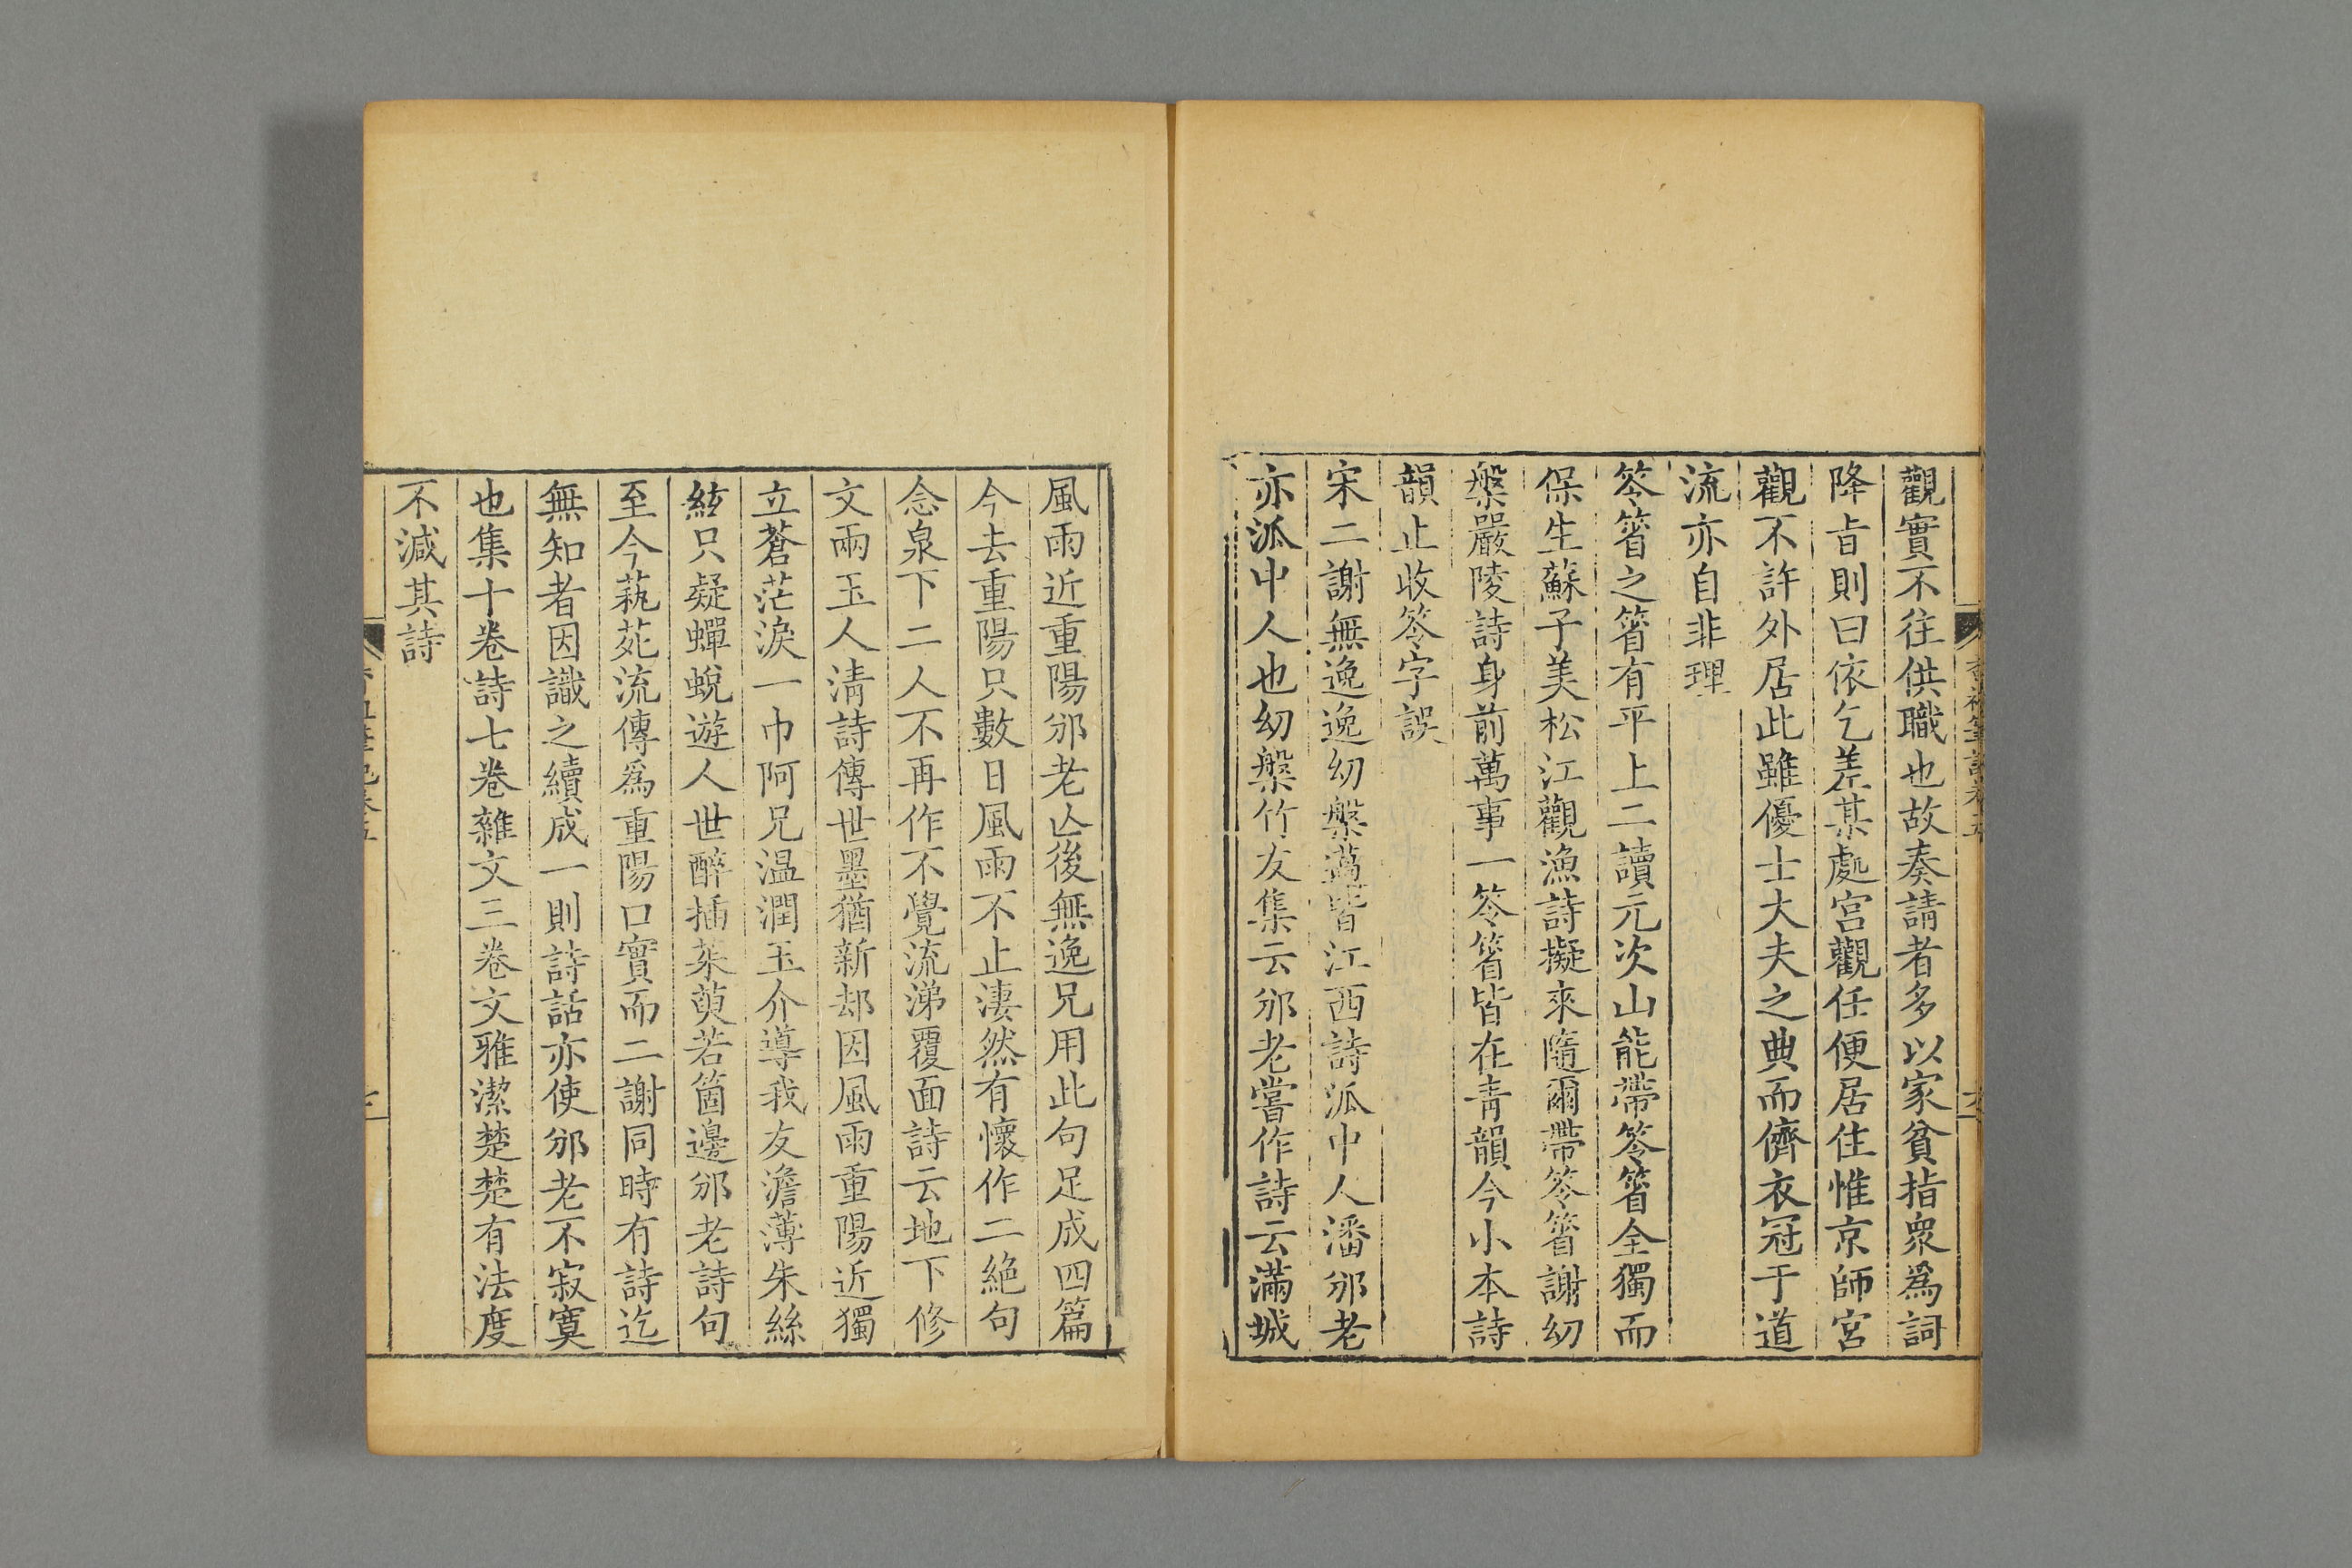 觀實不往供職也故奏請者多以家貧指衆爲詞
降旨則曰依乞差某處宫觀任便居住惟京師宮
觀不許外居此雖優士大夫之典而儕衣冠于道
流亦自非理
笭箵之箵有平上二讀元次山能帶笭箵全獨而
保生蘇子美松江觀漁詩擬來隨爾帶笭箵謝幼
槃嚴陵詩身前萬事一笭箵皆在青韻今小本詩
韻止收笭字誤
宋二謝無逸逸幼槃薖皆江西詩派中人潘邠老
亦派中人也幼槃竹友集云邠老嘗作詩云滿城
風雨近重陽邠老亾後無逸兄用此句足成四篇
今去重陽只數日風雨不止淒然有懷作二絶句
念泉下二人不再作不覺流涕覆面詩云地下修
文兩玉人清詩傳世墨猶新却因風雨重陽近獨
立蒼茫淚一巾阿兄温潤玉介導我友澹薄朱絲
絃只疑蟬蛻遊人世醉插茱萸若箇邊邠老詩句
至今蓺苑流傳爲重陽口實而二謝同時有詩迄
無知者因識之續成一則詩話亦使邠老不寂寞
也集十卷詩七卷雜文三卷文雅潔楚楚有法度
不減其詩